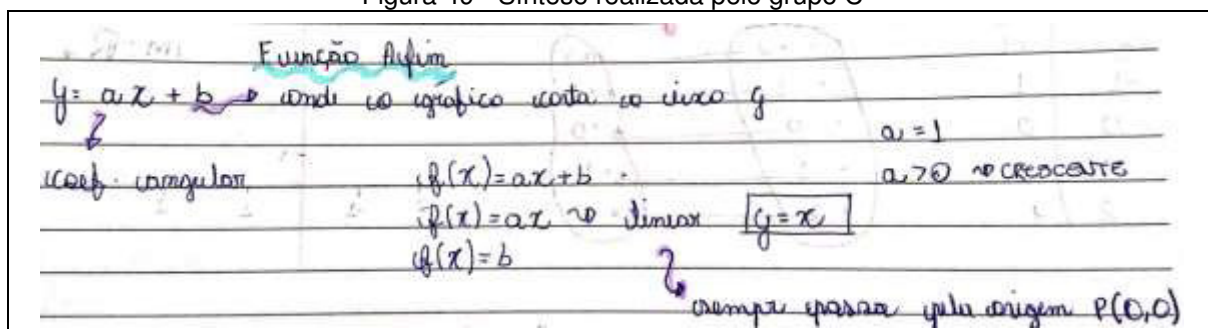 Figura 40 - Síntese realizada pelo grupo C
Função Afim
y = ax + b → onde o gráfico corta o eixo y
a = 1
coef. angular f(x) = ax + b a > 0 → CRESCENTE
f(x) = ax → linear y = x
f(x) = b
sempre passa pela origem P(0,0)